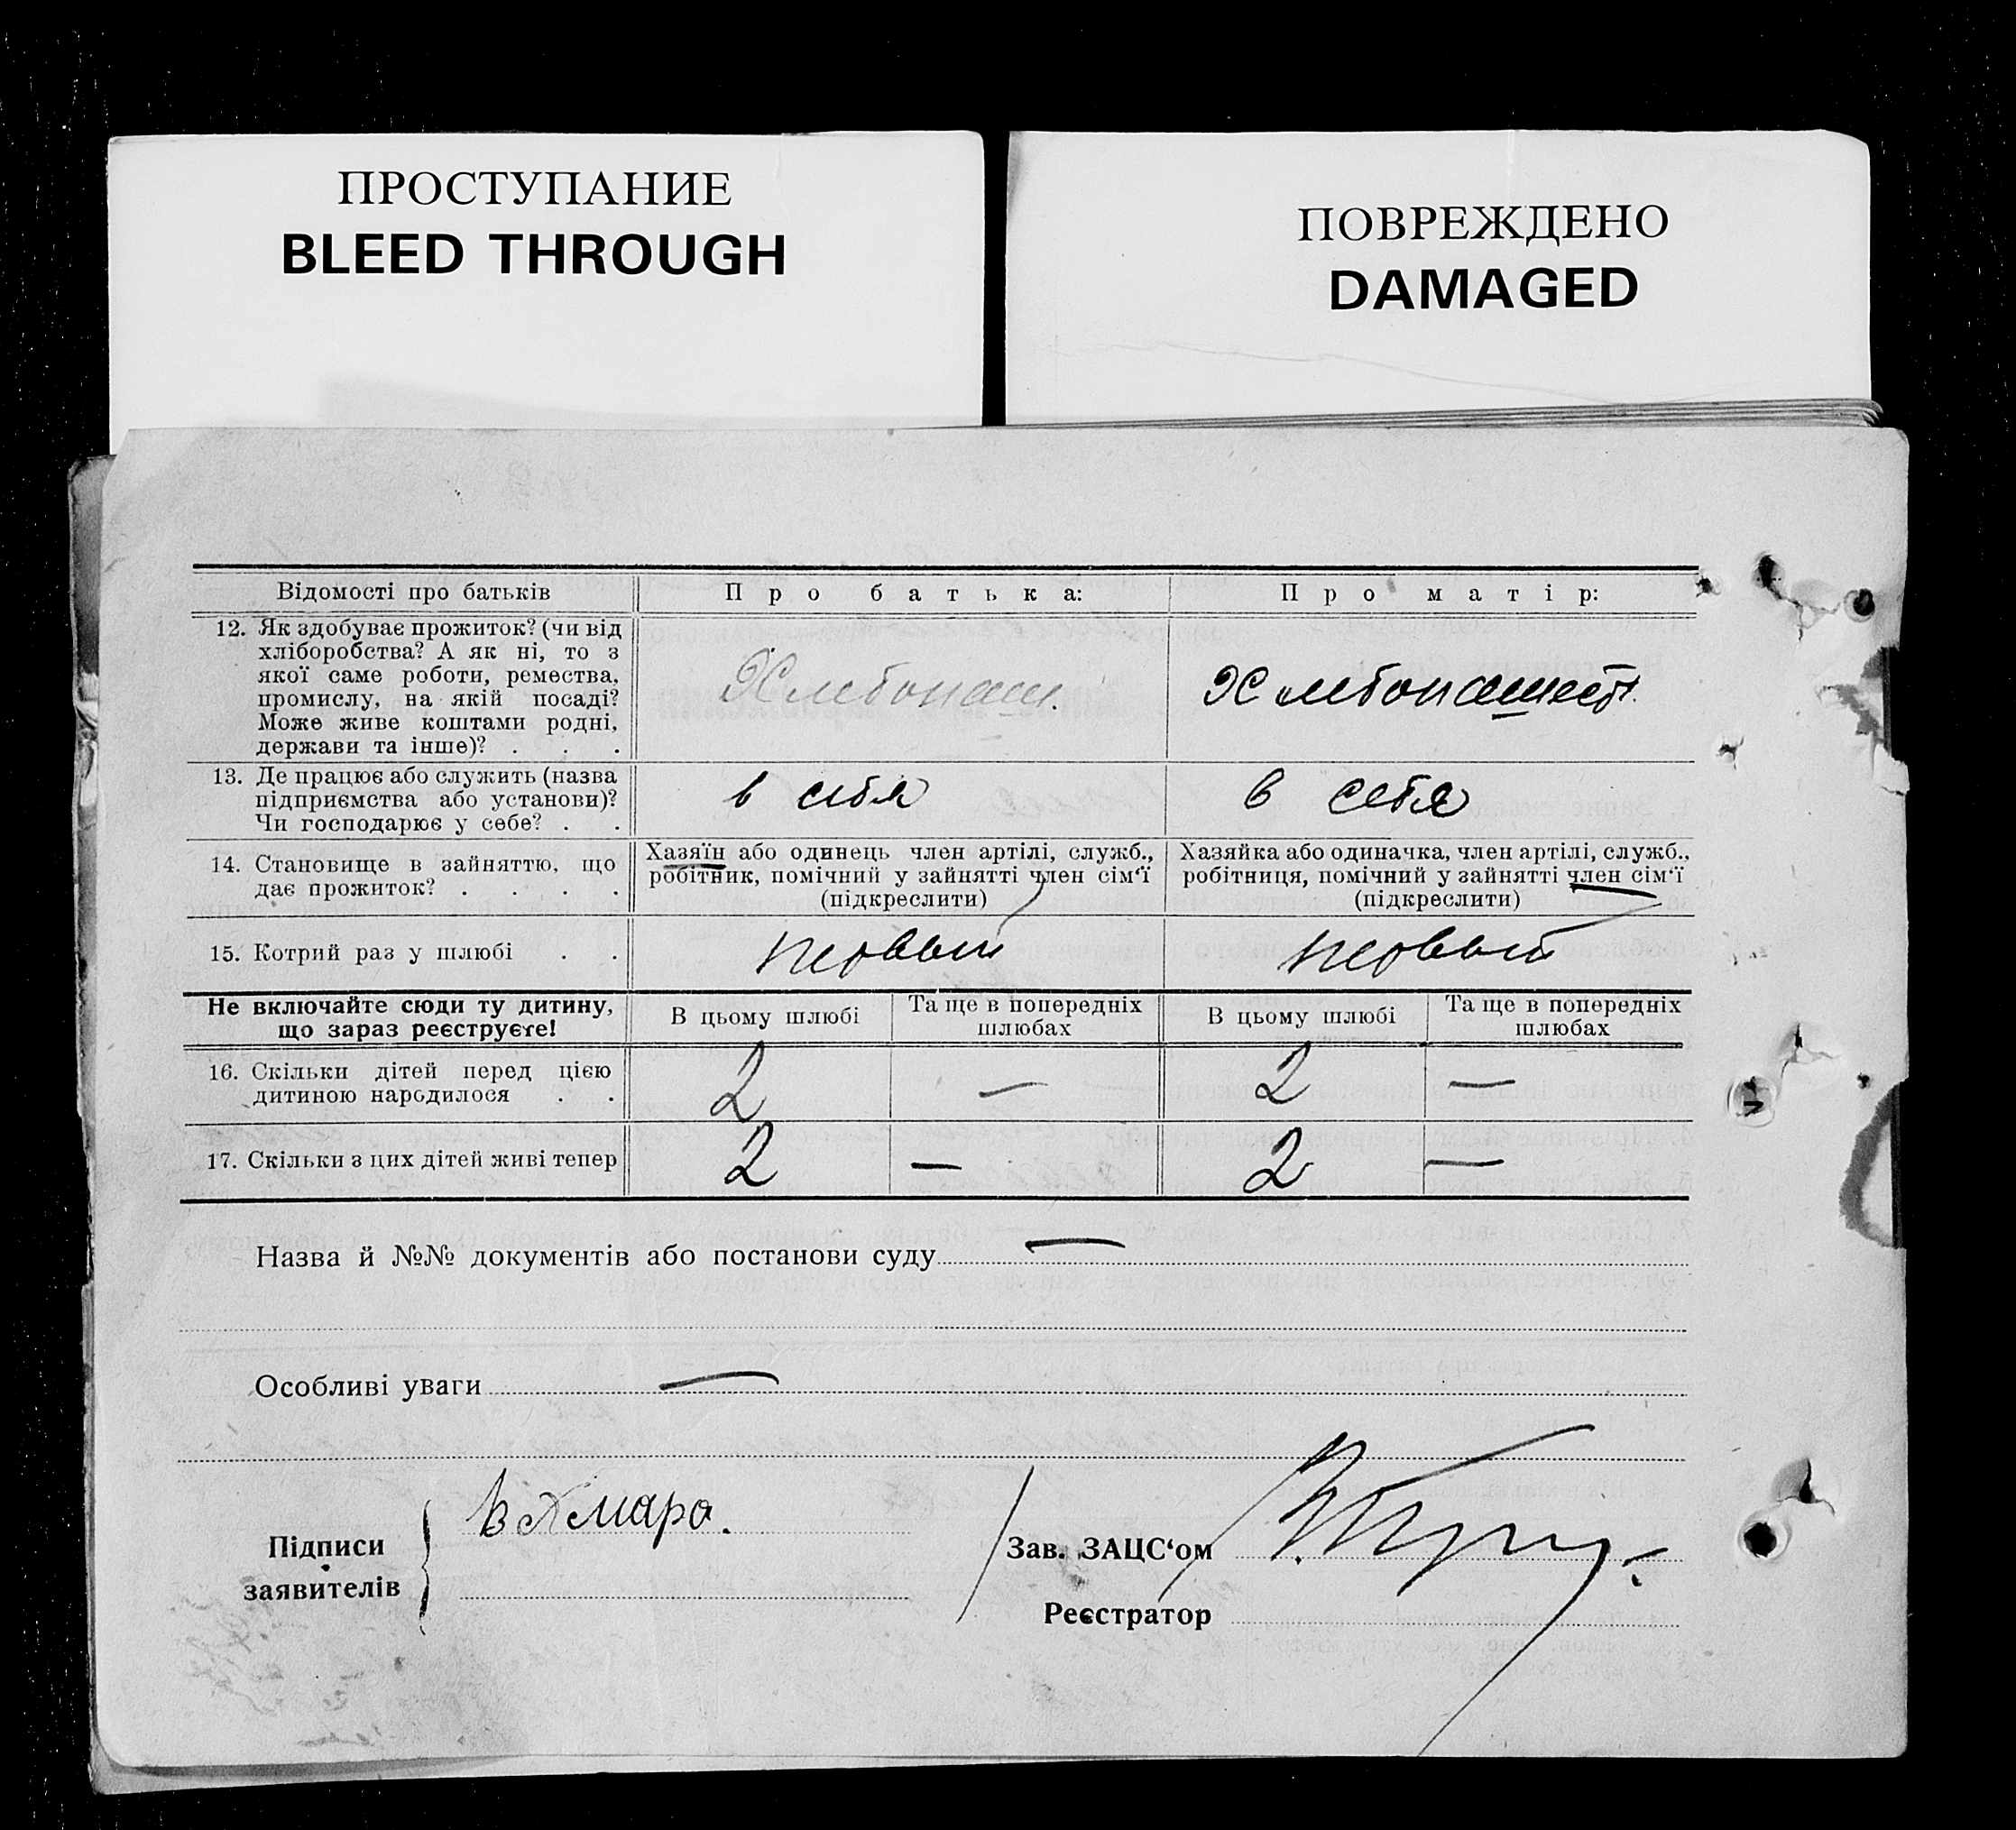 ПРОСТУПАНИЕ
BLEED THROUGH
ПОВРЕЖДЕНО
DAMAGED
Відомості про батьків
Про батька:
Про матір:
12. Як здобуває прожиток? (чи від
хліборобства? А як ні, то з
якої саме роботи, ремества,
промислу, на якій посаді?
Може живе коштами родні,
держави та інше)? . . .
Хлебопаш.
13. Де працює або служить (назва
підприємства або установи)?
Чи господарює у себе? . .
в себя
в себя
14. Становище в зайняттю, що
дає прожиток? . . . .
Хазяїн або одинець член артілі, служб.,
робітник, помічний у зайнятті член сім'ї
(підкреслити)
Хазяйка або одиначка, член артілі, служб.,
робітниця, помічний у зайнятті член сім'ї
(підкреслити)
15. Котрий раз у шлюбі . .
первый
первый
Не включайте сюди ту дитину,
що зараз реєструєте!
В цьому шлюбі
Та ще в попередніх
шлюбах
В цьому шлюбі
Та ще в попередніх
шлюбах
16. Скільки дітей перед цією
дитиною народилося . .
2
—
2
—
17. Скільки з цих дітей живі тепер
2
—
2
—
Назва й №№ документів або постанови суду —
Особливі уваги —
Підписи
заявителів
В Хмара.
Зав. ЗАЦС'ом
Реєстратор